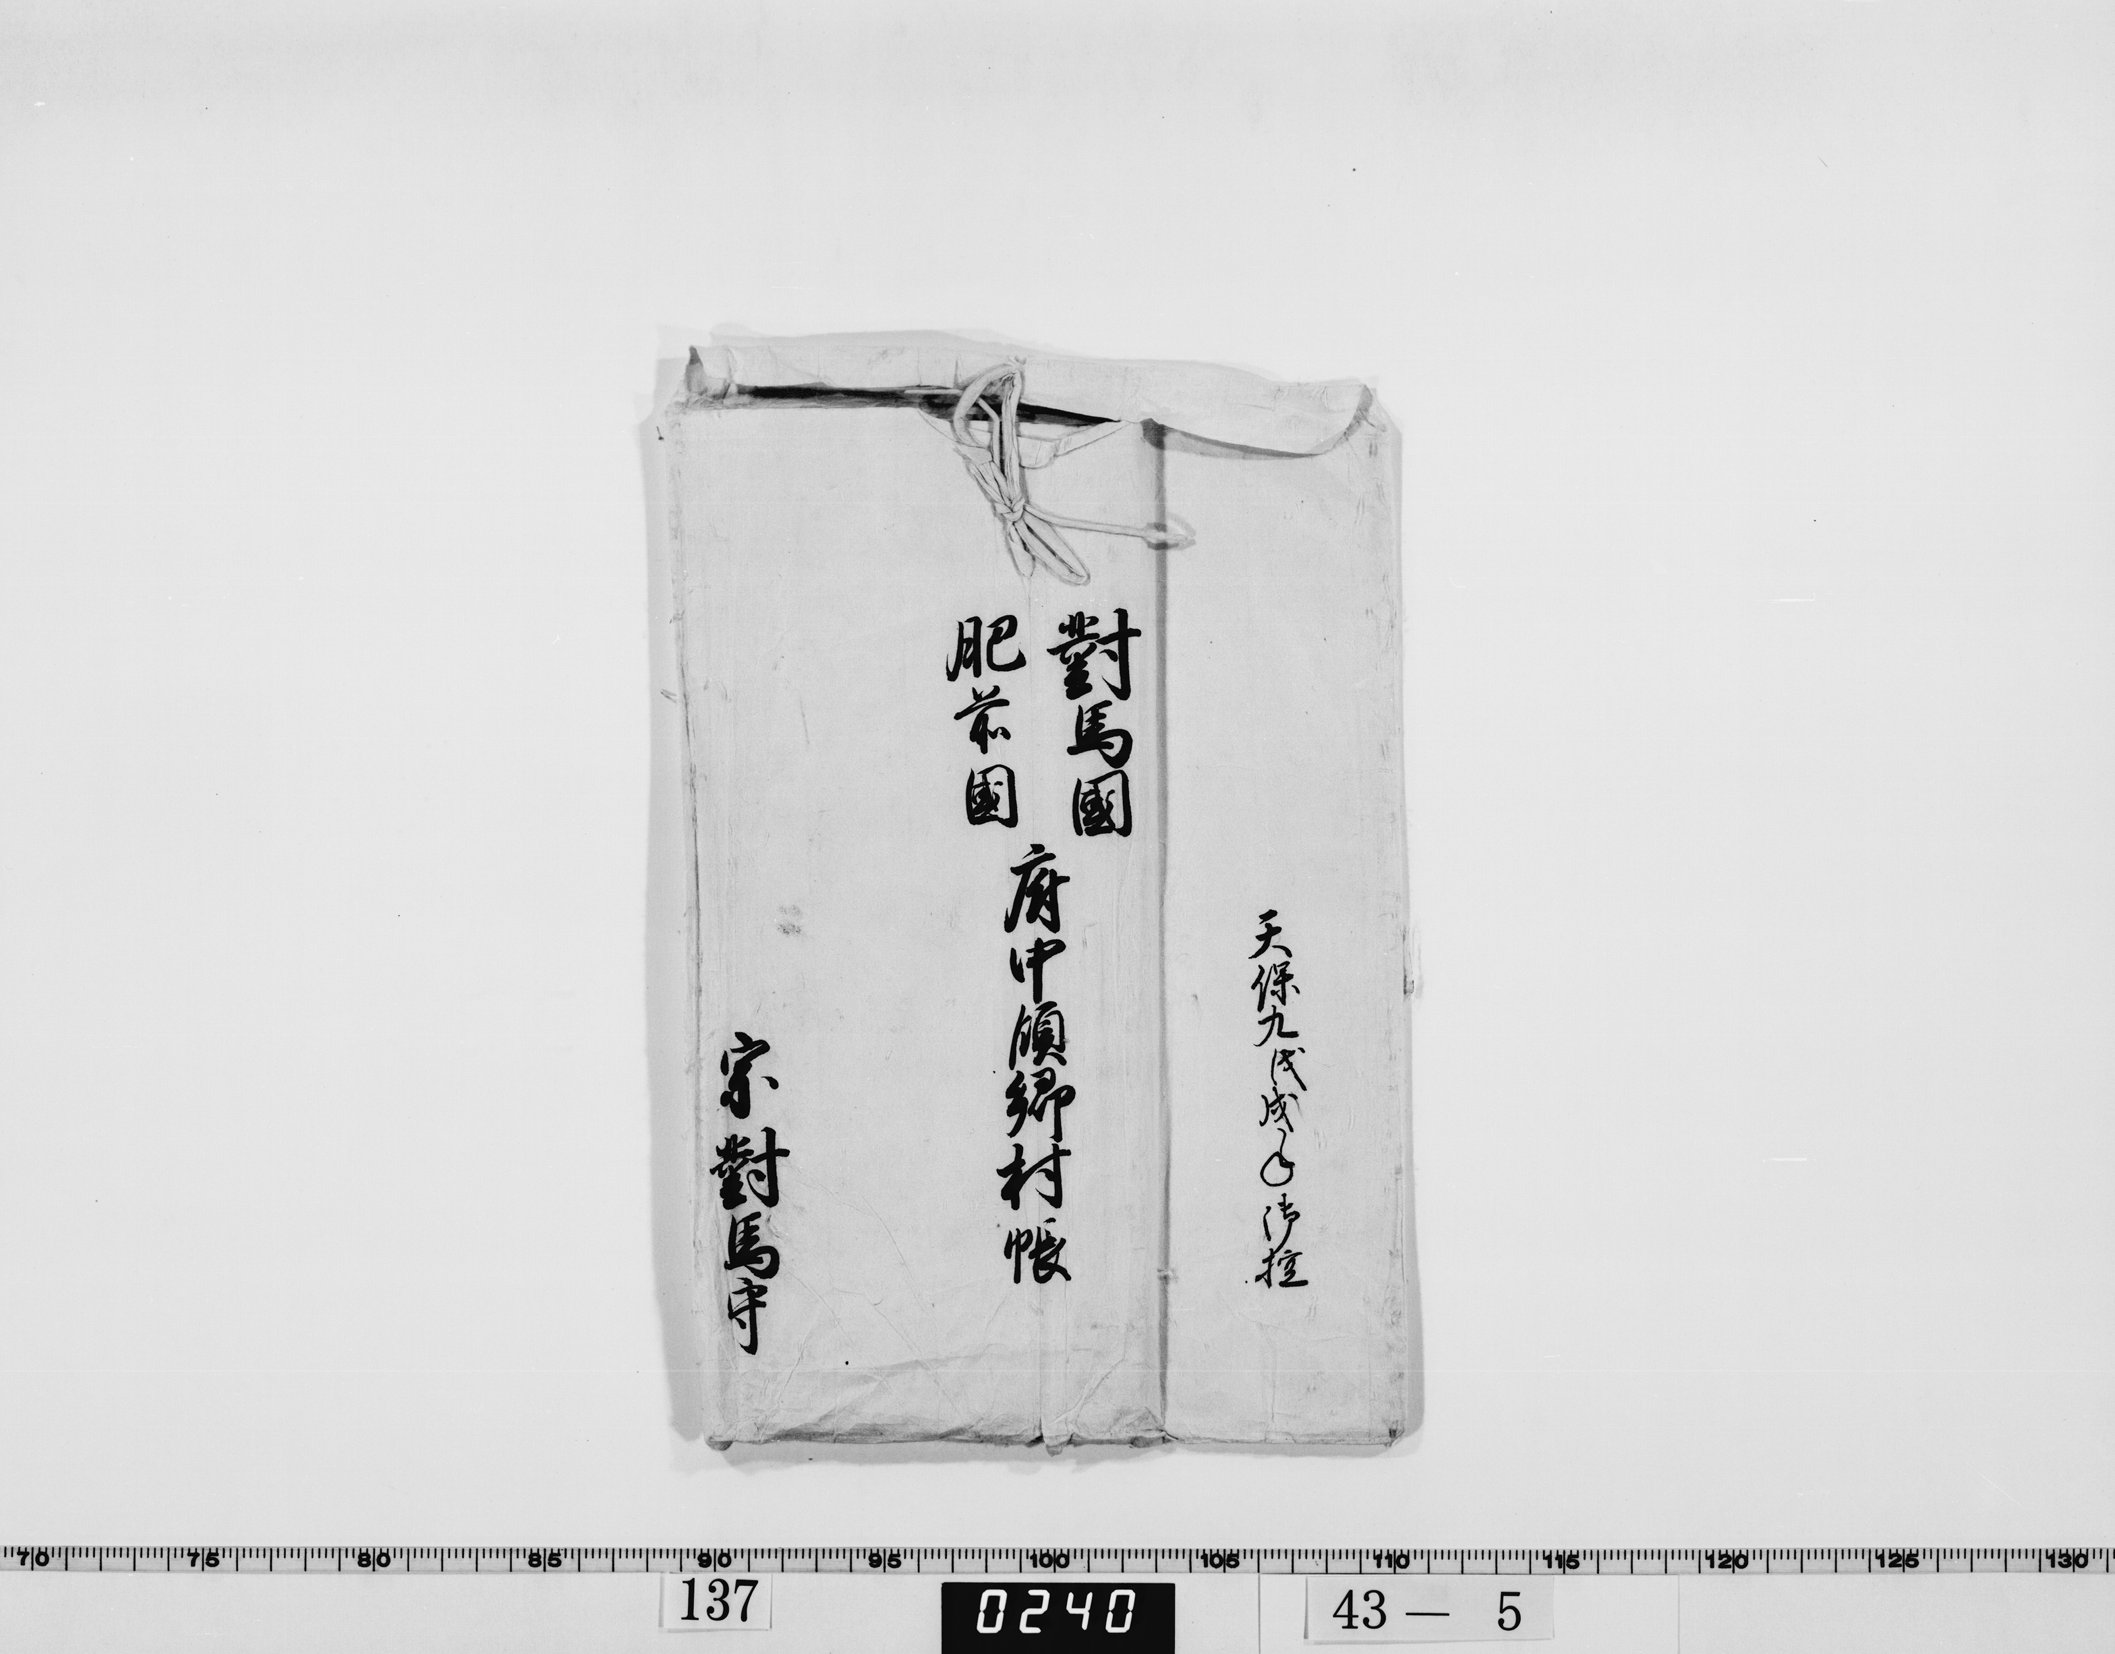 天保九戊戌年御控
對馬國
肥前國
府中領郷村帳
宗對馬守
70 75 80 85 90 95 100 105 110 115 120 125 130
137
0240
43 — 5